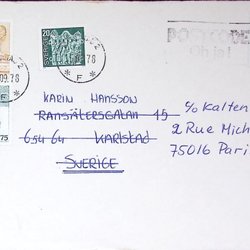 20
SVERIGE
09.78
F
POSTCODE
Oh ja!
75
KARIN HANSSON
RANSÄTERSGATAN 15
65464 KARLSTAD
SVERIGE
c/o Kalten
2 Rue Mich
75016 Pari